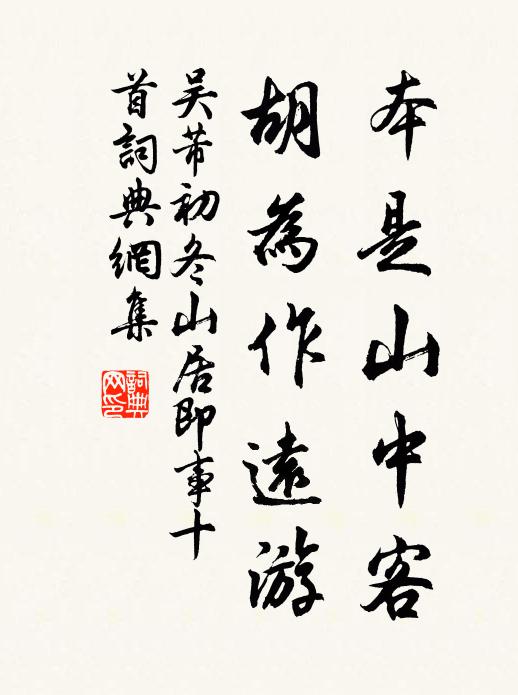 本是山中客
胡為作遠游
吴芾初冬山居即事十
首詞典網集
詞典
网印